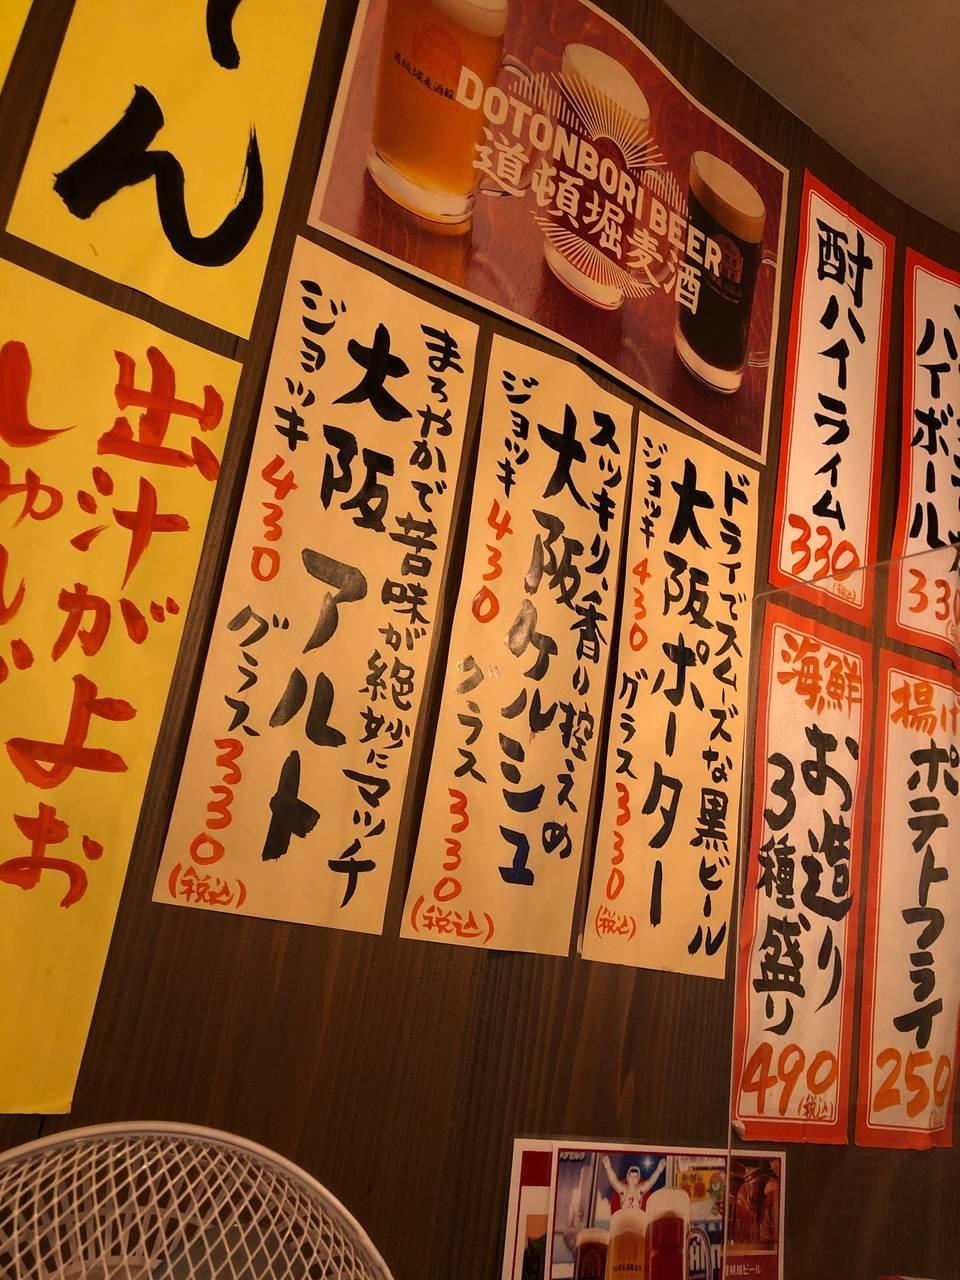 DOTONBORI BEER
道頓堀麦酒
ん
出汁がよお
まろやかで苦味が絶妙にマッチ
大阪アルト
ジョッキ430 グラス330
(税込)
スッキリ、香り控えめ
大阪ケルシュ
ジョッキ430 グラス330
(税込)
ドライでスムーズな黒ビール
大阪ポーター
ジョッキ430 グラス330
(税込)
酎ハイライム
330
(税込)
ハイボール
330
海鮮
お造り
3種盛り
490
(税込)
揚げ
ポテトフライ
250